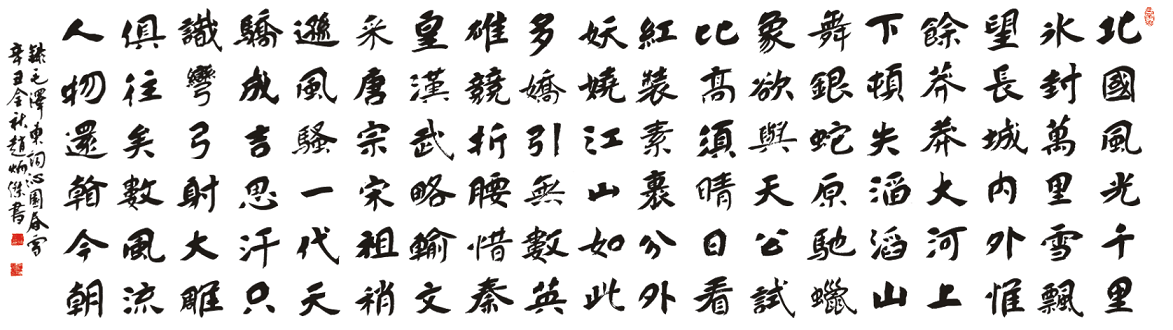 北國風光千里
氷封萬里雪飄
望長城内外惟
餘莽莽大河上
下頓失滔滔山
舞銀蛇原馳蠟
象欲與天公試
比高須晴日看
紅裝素裹分外
妖嬈江山如此
多嬌引無數英
雄競折腰惜秦
皇漢武略輸文
采唐宗宋祖稍
遜風騷一代天
驕成吉思汗只
識彎弓射大雕
俱往矣數風流
人物還看今朝
錄毛澤東詞沁園春雪
辛丑金秋趙炳傑書